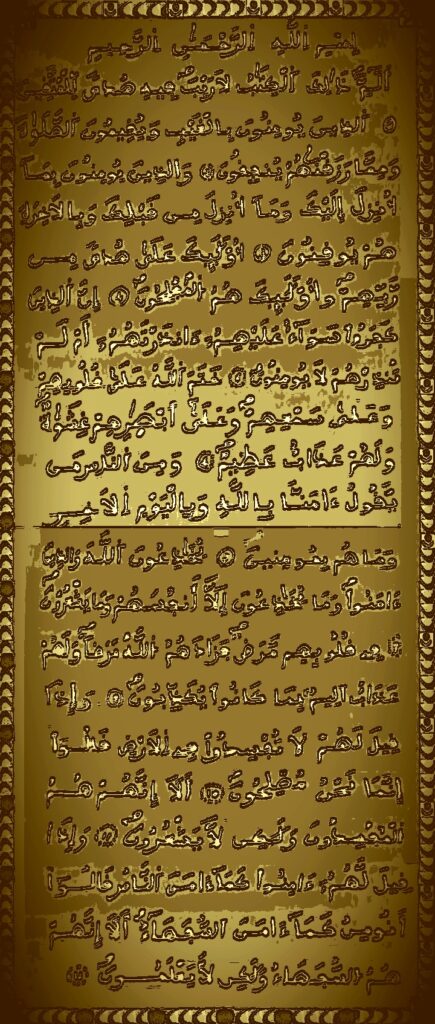 بِسْمِ اللَّهِ الرَّحْمَٰنِ الرَّحِيمِ
الٓمٓ ذَٰلِكَ الْكِتَٰبُ لَا رَيْبَ فِيهِ هُدًى لِّلْمُتَّقِينَ
الَّذِينَ يُومِنُونَ بِالْغَيْبِ وَيُقِيمُونَ الصَّلَوٰةَ
وَمِمَّا رَزَقْنَٰهُمْ يُنفِقُونَ وَالَّذِينَ يُومِنُونَ بِمَآ
أُنزِلَ إِلَيْكَ وَمَآ أُنزِلَ مِن قَبْلِكَ وَبِالَاخِرَةِ
هُمْ يُوقِنُونَ أُوْلَٰٓئِكَ عَلَىٰ هُدًى مِّن
رَّبِّهِمْ وَأُوْلَٰٓئِكَ هُمُ الْمُفْلِحُونَ إِنَّ الَّذِينَ
كَفَرُوا سَوَآءٌ عَلَيْهِمُ ءَانذَرْتَهُمُ أَمْ لَمْ
تُنذِرْهُمْ لَا يُومِنُونَ خَتَمَ اللَّهُ عَلَىٰ قُلُوبِهِمْ
وَعَلَىٰ سَمْعِهِمْ وَعَلَىٰٓ أَبْصَٰرِهِمْ غِشَٰوَةٌ
وَلَهُمْ عَذَابٌ عَظِيمٌ وَمِنَ النَّاسِ مَن
يَقُولُ ءَامَنَّا بِاللَّهِ وَبِالْيَوْمِ الَاخِرِ
وَمَا هُم بِمُومِنِينَ يُخَٰدِعُونَ اللَّهَ وَالَّذِينَ
ءَامَنُوا وَمَا يُخَٰدِعُونَ إِلَّآ أَنفُسَهُمْ وَمَا يَشْعُرُونَ
فِي قُلُوبِهِم مَّرَضٌ فَزَادَهُمُ اللَّهُ مَرَضًا وَلَهُمْ
عَذَابٌ أَلِيمٌ بِمَا كَانُوا يُكَذِّبُونَ وَإِذَا
قِيلَ لَهُمْ لَا تُفْسِدُوا فِي الَارْضِ قَالُوٓا
إِنَّمَا نَحْنُ مُصْلِحُونَ أَلَآ إِنَّهُمْ هُمُ
الْمُفْسِدُونَ وَلَٰكِن لَّا يَشْعُرُونَ وَإِذَا
قِيلَ لَهُمُ ءَامِنُوا كَمَآ ءَامَنَ النَّاسُ قَالُوٓا
أَنُومِنُ كَمَآ ءَامَنَ السُّفَهَآءُ أَلَآ إِنَّهُمْ
هُمُ السُّفَهَآءُ وَلَٰكِن لَّا يَعْلَمُونَ